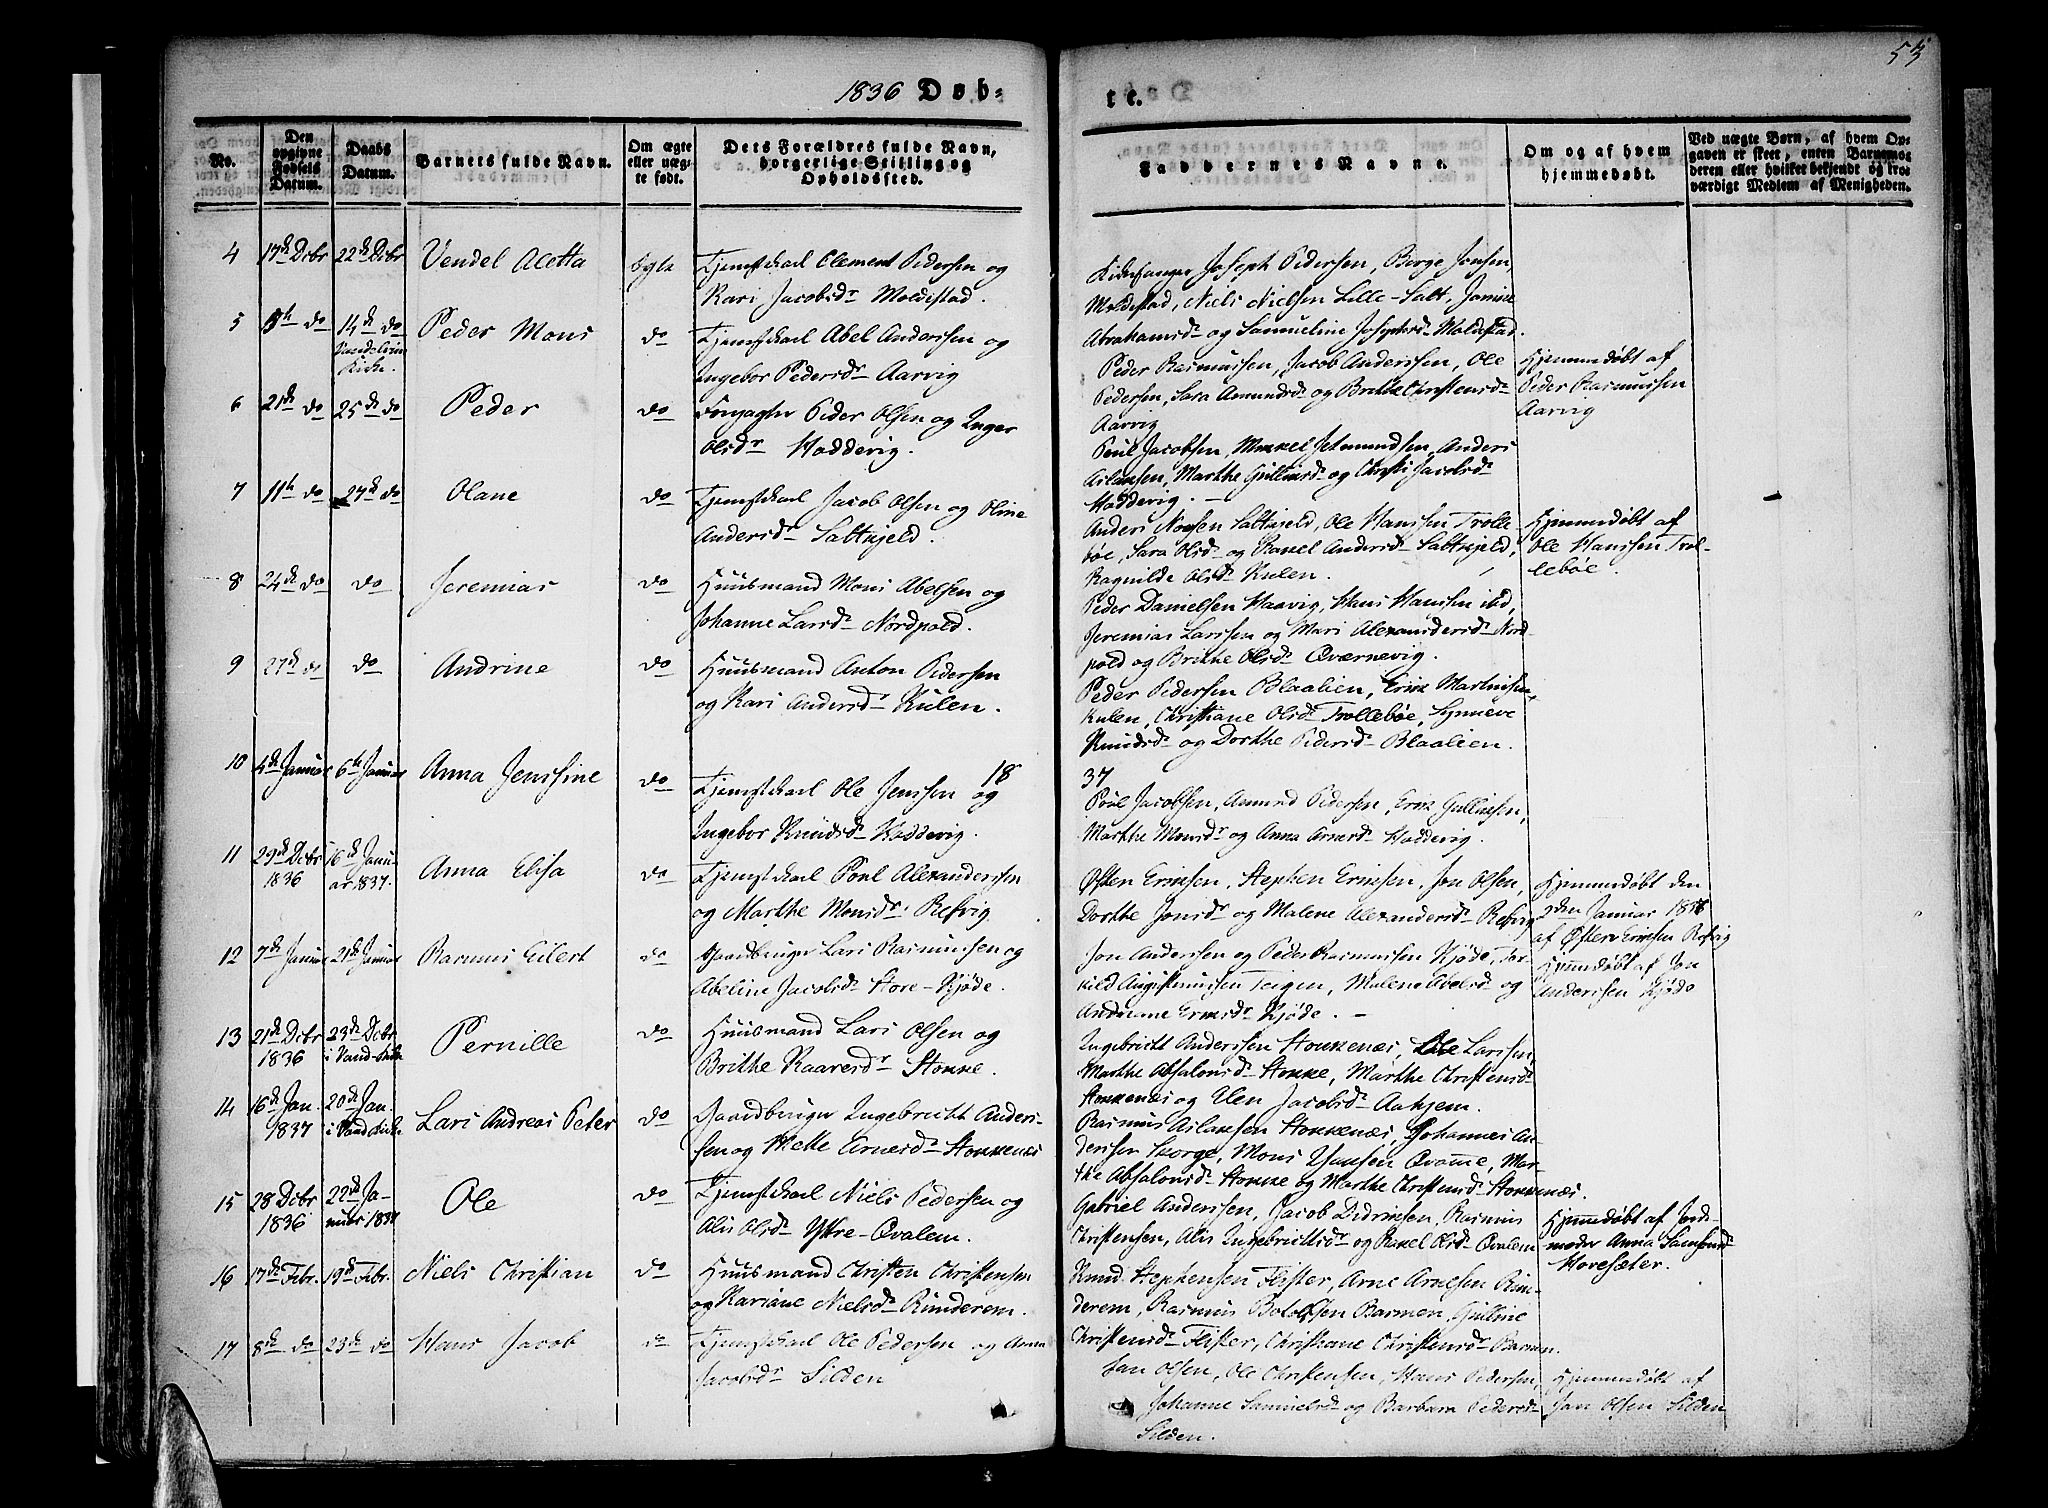 53
1836 Døb-
te.
No.
Den opgivne Fødsels Datum.
Daabs Datum.
Barnets fulde Navn.
Om ægte eller uægte født.
Dets Forældres fulde Navn, borgerlige Stilling og Opholdssted.
Faddernes Navne.
Om og af hvem hjemmedøbt.
Ved uægte Børn, af hvem Opgaven er skeet, enten Barnemoderen eller hvilket bekjendt og troværdigt Medlem af Menigheden.
4 17de Dcbr 22de Dcbr Vendel Acetta Ægte Tjenestekarl Clement Pedersen og
Kari Jacobsdr Moldestad.
Kirkesanger Joseph Pedersen, Børge Jonsen,
Moldestad, Niels Nielsen Lille-Salt, Janike
Abrahamsdr og Samueline Josephsdr Moldestad.
5 do 14de do Peder Mons do Tjenestekarl Abel Anderssen og
Kirke.
Ingebor Pedersdr Aarvig
Peder Rasmussen, Jacob Anderssen, Ole
Pedersen, Sara Amundsdr og Brithe Christensdr
Aarvig
Hjemmedøbt af
Peder Rasmussen
Aarvig
6 21de do 25de do Peder do Forpagter Peder Olsen og Inger
Olsdr Hoddevig.
Poul Jacobsen, Mikkel Jetmundsen, Anders
Aslaksen, Marthe Gulliksdr og Christi Jacobsdr
Hoddevig.
7 11te do 27de do Olane do Tjenestekarl Jacob Olsen og Oline
Andersdr Saltkjeld.
Anders Saltkjeld, Ole Hanssen Trolle-
bøe, Sara Olsdr og Rakel Andersdr Saltkjeld,
Ragnilde Olsdr Kulen.
Hjemmedøbt af
Ole Hanssen Trol-
lebøe.
8 24de do do Jeremias do Huusmand Mons Abelsen og
Johanne Larsdr Nordpold.
Peder Danielsen Haavig, Hans Hanssen ibd,
Jeremias Larssen og Mari Alexandersdr Nord-
pold og Brithe Olsdr Qværnevig.
9 27de do do Andrine do Huusmand Anton Pedersen
og Kari Andersdr Kulen.
Peder Pedersen Blaalien, Erik Martinsen,
Kulen, Christiane Olsdr Trollebøe, Synneve
Knudsdr og Dorthe Pedersdr Blaalien.
18
37
10 4de Januar 6te Januar Anna Jenssine do Tjenestekarl Ole Jenssen og
Ingebor Knudsdr Hoddevig.
Poul Jacobsen, Amund Pedersen, Erik Gulliksen,
Marthe Monsdr og Anna Arnesdr Hoddevig.
11 29de Dcbr 16de Janu- Anna Elisa do Tjenestekarl Poul Alexanderssen
1836 ar 1837.
og Marthe Monsdr Refvig
Østen Eriksen, Stephen Eriksen, Jon Olsen,
Dorthe Jonsdr og Malene Alexandersdr Refvig
Hjemmedøbt den
2den Januar
af Østen Eriksen Refvig
12 7de Januar 21de Januar Rasmus Eilert do Gaardbruger Lars Rasmussen og
Abeline Jacobsdr Store-Kjøde.
Jon Anderssen og Peder Rasmussen Kjøde, Tor-
kild Teigen, Malene Abelsdr og
Andreane Eriksdr Kjøde.
Hjemmedøbt af Jon
Anderssen Kjøde
13 21de Dcbr 23de Dcbr Pernille do Huusmand Lars Olsen og
1836 i Vand-Kirke
Brithe Kaaresdr Stokke.
Ingebricht Anderssen Stokkenæs, Ole Larssen,
Marthe Absalonsdr Stokke, Marthe Christensdr
Stokkenæs og Elen Jacobsdr Aahjem.
14 16de Jan. 20de Jan. Lars Andreas Peter do Gaardbruger Ingebricht Anders-
1837 i Vand Kirke
sen og Mette Arnesdr Stokkenæs
Rasmus Aslaksen Stokkenæs, Johannes An-
derssen Skorge, Mons Hansen Qvame, Mar-
the Absalonsdr Stokke og Marthe Christensdr Stokkenæs.
15 28 Dcbr 22de Ja- Ole do Tjenestekarl Niels Pedersen og
1836 nuar 1837
Alis Olsdr Ytre-Qvalem.
Gabriel Anderssen, Jacob Didriksen, Rasmus
Christensen, Alis Ingebrichtsdr og Rakel Olsdr Qvalem
Hjemmedøbt af Jorde-
moder Anna Samsonsdr
Hovesæter.
16 17de Febr. 19de Febr. Niels Christian do Huusmand Christen Christensen
og Kariane Nielsdr Runderem.
Knud Stephensen Flister, Arne Arnesen Run-
derem, Rasmus Botolfsen Barmen, Gulline
Christensdr Flister, Christiane Christensdr Barmen.
17 8de do 23de do Hans Jacob do Tjenestekarl Ole Pedersen og Anna
Jacobsdr Silden
Jan Olsen, Ole Christensen, Hans Pedersen,
Johanne Samuelsdr og Barbara Pedersdr
Silden.
Hjemmedøbt af
Jan Olsen Silden